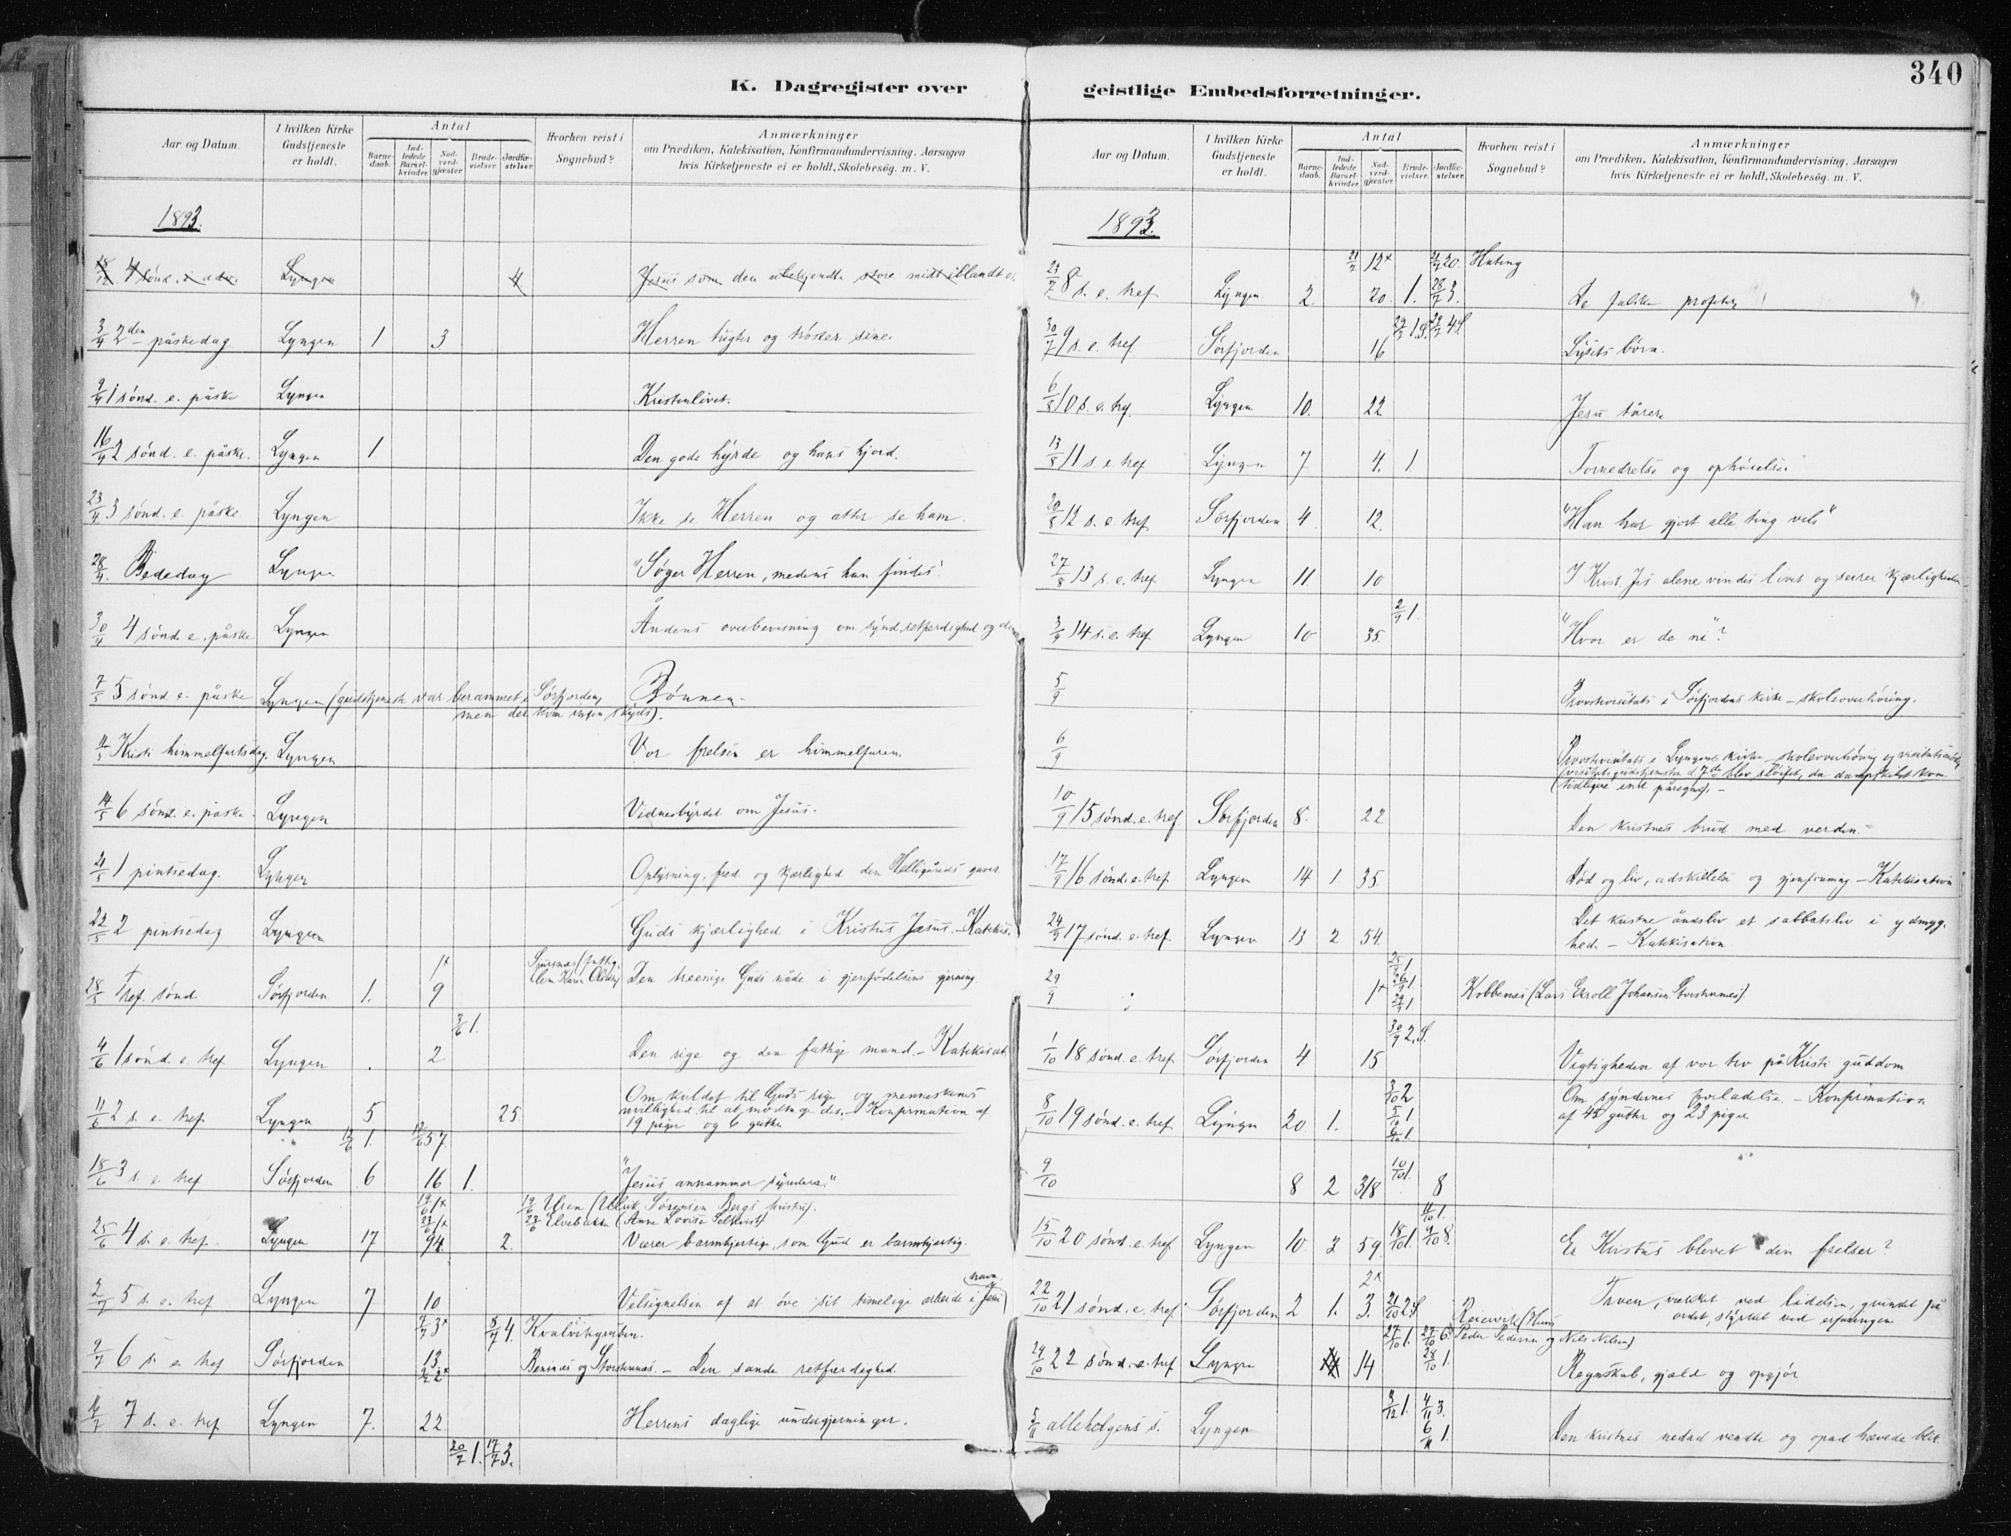 340
K. Dagregister over
geistlige Embedsforretninger.
Aar og Datum.
I hvilken Kirke Gudstjeneste er holdt.
Antal
Barnedaab.
Indledede Barselkvinder.
Nadverdgjæster
Brudevielser.
Jordfæstelser
Hvorhen reist i Sognebud?
Anmærkninger
om Prædiken, Katekisation, Konfirmandundervisning, Aarsagen
hvis Kirketjeneste ei er holdt, Skolebesøg. m. V.
1893.
18/12 4 sønd. i adv. Lyngen 4 Jesus som den ubekjendte store midt iblandt os
3/4 2den påskedag Lyngen 1 3 Herren tugter og trøster sine.
9/4 1 sønd. e. påske Lyngen Kristenlivet.
16/4 2 sønd. e. påske. Lyngen 1 Den gode hyrde og hans hjord.
23/4 3 sønd. e. påske Lyngen Ikke se Herren og atter se ham.
28/4 Bededag Lyngen "Søger Herren, medens han findes".
30/4 4 sønd. e. påske Lyngen Åndens overbevisning om synd, retfærdighed og dom
7/5 5 sønd e. påske Lyngen (gudstjeneste var berammet i Sørfjorden, Bønnen
men der kom ingen skyds).
11/5 Kristi himmelfartsdag. Lyngen Vor frelser er himmelfaren.
14/5 6 sønd. e. påske. Lyngen Vidnesbyrdet om Jesus.
21/5 1 pintsedag. Lyngen Oplysning, fred og kjærlighed den Helligånds gaver.
22/5 2 pintsedag Lyngen Guds kjærlighed i Kristus Jesus. Katekis.
1x
28/5 Tref. sønd Sørfjorden 1. 9 Den treenige Guds nåde i gjenfødelsens gjerning.
3/6 1.
4/6 1 sønd. e. tref. Lyngen 2 Den rige og den fattige mand. - Katekisat.
Om kaldet til Guds rige og menneskenes
11/6 2 s. e. tref. Lyngen 5 25. uvillighed til at modtage det. - Konfirmation af
19 piger og 6 gutter
12/6 1. 12/6 57.
18/6 3 s. e. tref Sørfjorden 6 16 1. "Jesus annammer syndere."
19/6 1x Sørensen Bergs hustru).
23/6 1x 23/6 Elvebakken (Anne Lovise
25/6 4 s. e. tref. Lyngen 17 94. 2. Værer barmhjertige, som Gud er barmhjertig.
2/7 5 s. e. tref Lyngen 7 10 Velsignelsen af at øve sit timelige arbeide i Jesu navn
7/7 3x 8/7 4. Kvalvikgruben.
9/7 6 s. e. tref Sørfjorden 13 Bensnæs og Storstennæs - Den sande retfærdighed.
9/7 2x
16/7 7 s. e. tref. Lyngen 7. 22 Herrens daglige undergjerninger.
20/7 1. 17/7 3.
Aar og Datum.
I hvilken Kirke Gudstjeneste er holdt.
Antal
Barnedaab.
Indledede Barselkvinder.
Nadverdgjæster
Brudevielser.
Jordfæstelser.
Hvorhen reist i Sognebud?
Anmærkninger
om Prædiken, Katekisation, Konfirmandundervisning, Aarsagen
hvis Kirketjeneste ei er holdt, Skolebesøg. m. V.
1893.
21/7 12x 21/7 20. Hateng
23/7 8 s. e. tref Lyngen 2. 20. 1. 28/7 3. De falske profeter
29/7 1S. 29/7 4S
30/7 9 s. e. tref Sørfjorden 16 Lysets børn.
6/8 10 s. e. tref. Lyngen 10. 22 Jesu tårer
13/8 11 s. e. tref Lyngen 7 4. 1 Fornedrelse og ophøielse
20/8 12 s. e. tref Sørfjorden 4. 12. "Han har gjort alle ting vel"
27/8 13 s. e. tref Lyngen 11 10 I Krist. Jes alene vindes livet og seirer kjærligheden.
2/9 1.
3/9 14 s. e. tref. Lyngen 10 35. "Hvor er de ni"?
5/9 Provstevisitats i Sørfjordens kirke - skoleoverhøring.
6/9 Provstevisitats i Lyngens kirke - skoleoverhøring og
(visitatsgudstjenesten d 7de blev sløifet, da dampskibet kom
tidligere end påregnet). -
10/9 15 sønd. e. tref Sørfjorden 8. 22 Den kristnes brud med verden.
17/9 16 sønd. e. tref. Lyngen 14 1 35. Død og liv, adskillelse og gjenforening - Katekisation
Det kristne åndsliv et sabbatsliv i ydmyg-
24/9 17 sønd. e. tref. Lyngen 13 2 54. hed. - Katekisation
25/9 1
26/9 1.
29/9 1x 29/9 1. Kobbenes (Lars Ekroll Johansen Storstennes)
30/9 2.S.
1/10 18 sønd. e. tref Sørfjorden 4 15 Vigtigheden af vor tro på Kristi guddom
3/10 2 Om syndernes forladelse. - Konfirmation
8/10 19 sønd. e. tref. Lyngen 20 1. 5/10 1 af 45 gutter og 23 piger.
6/10 1
9/10 8 2 318 10/10 1. 8
11/10 1.
15/10 20 sønd. e. tref Lyngen 10. 3 59 18/10 1. 9/10 8. Er Kristus blevet din frelser?
2x Troen, vækket ved lidelsen, grundet på
22/10 21 sønd. e. tref Sørfjorden 2 1. 3. 21/10 2S ordet, styrket ved erfaringen
27/10 1. 27/10 6. Peder Pedersen og Nils Nilsen)
29/10 22 sønd. e. tref Lyngen 14 28/10 1. Regnskab, gjæld og opgjør
3/12 1. 4/11 3.
5/11 allehelgens s. Lyngen 6/11 1 Den kristnes nedad vendte og opad hævede blik.